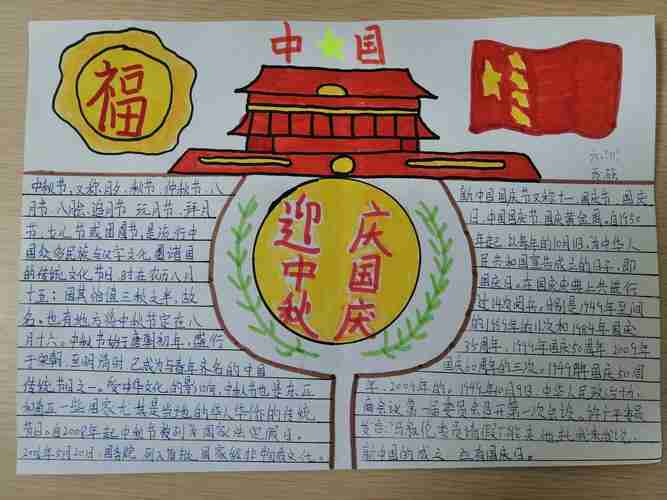 中国
福
迎中秋
庆国庆
中秋节,又称月夕、秋节、仲秋节、八
月节、八月会、追月节、玩月节、拜月
节、女儿节或团圆节,是流行中
国众多民族与汉字文化圈诸国
的传统文化节日,时在农历八月
十五;因其恰值三秋之半,故
名。也有地方将中秋节定在八
月十六。中秋节始于唐朝初年,盛行
于宋朝,至明清时,已成为与春年齐名的中国
传统节日之一。受中华文化的影响,中秋节也是东
和南亚一些国家尤其是当地的华人华侨的传统
节日。自2008年起中秋节被列为国家法定假日。
2006年5月20日,国务院列入首批国家级非物质文化
新中国国庆节又称十一、国庆节、国庆
日、中国国庆节、国庆黄金周。自1950
年起,以每年的10月1日,为中华人
民共和国宣告成立的日子,即
国庆日。在国庆庆典上共举行
过14次阅兵。分别是1949年至
的1959年的11次和1984年国庆
35周年、1999年国庆50周年、2009年
国庆60周年的三次。1999年国庆50周
年、2009年的。1949年10月9日,中华人民政
商会议第一届委员会召开第一次会议。
新中国的成立